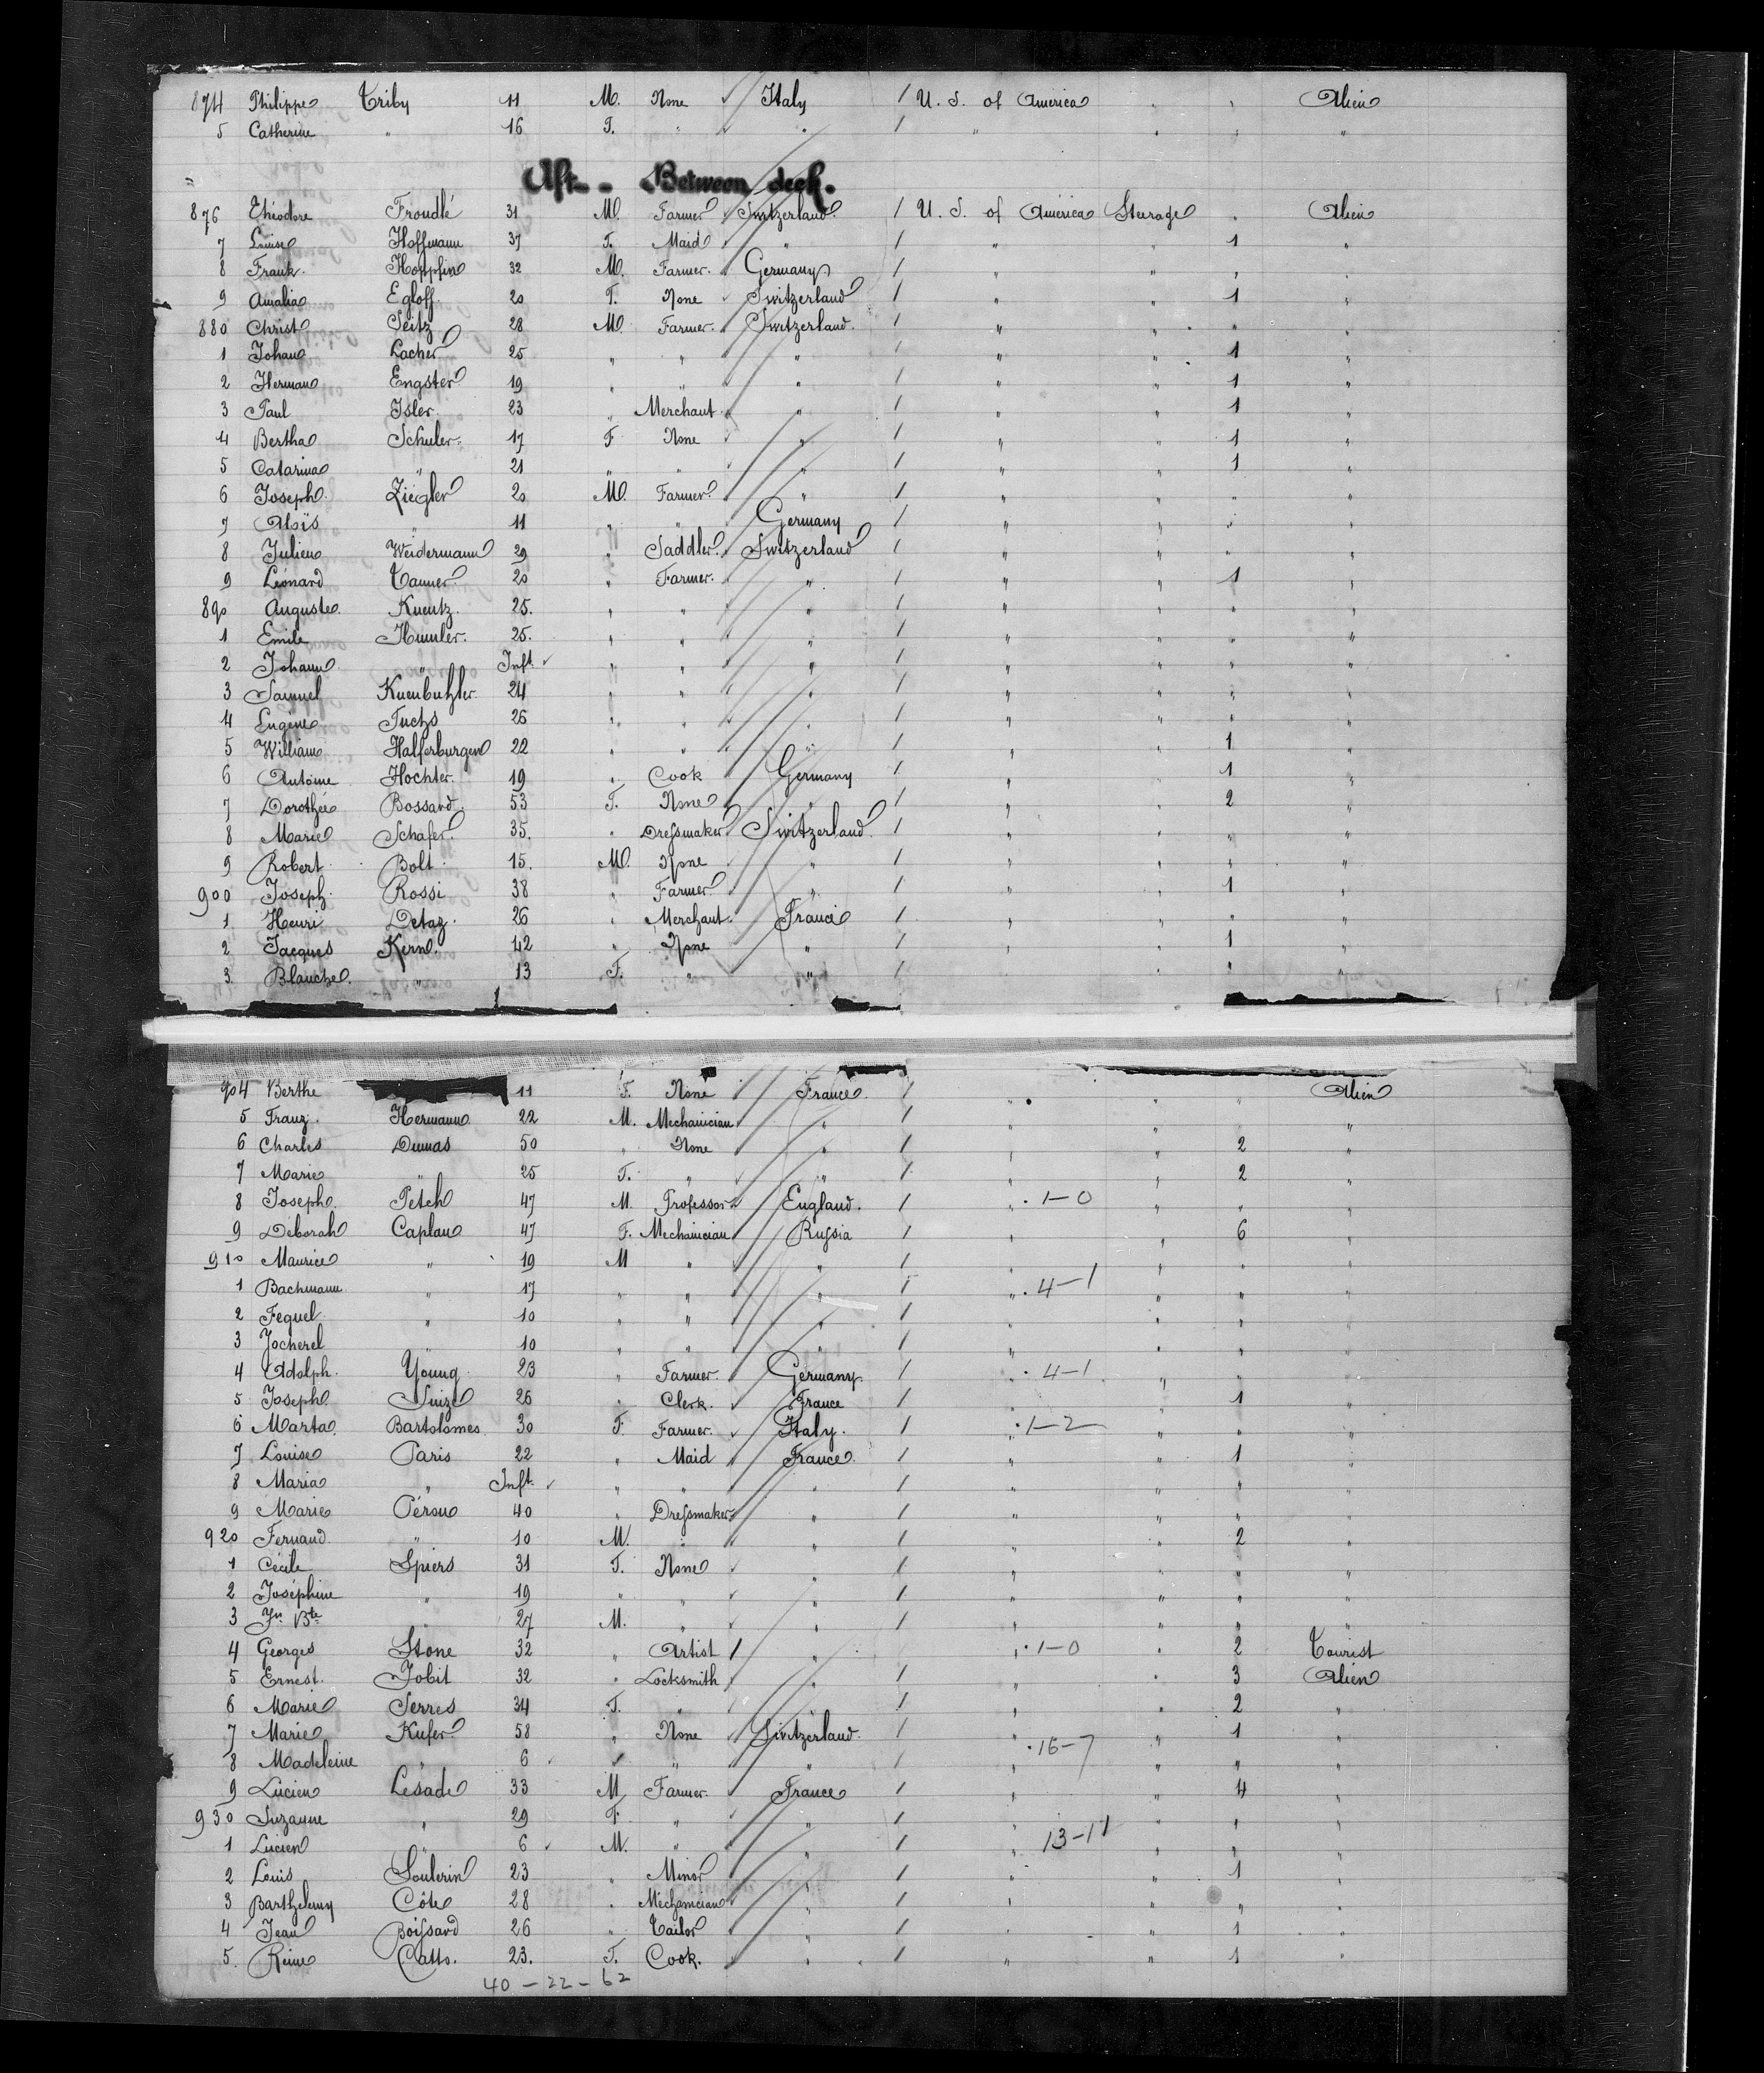 874 Philippe Triby 11 M. None Italy / U. S. of America " " Alien
5 Catherine " 16 F. " " / " " " "
Aft - Between deck.
876 Théodore Froudlé 31 M. Farmer Switzerland / U. S. of America Steerage " Alien
7 Louise Hoffmann 37 F. Maid " / " " 1 "
8 Frank Hoppfin 32 M. Farmer Germany / " " " "
9 Amalia Egloff 20 F. None Switzerland / " " 1 "
880 Christ Seitz 28 M. Farmer Switzerland / " " " "
1 Johan Lacher 25 " " " / " " 1 "
2 Herman Engster 19 " " " / " " 1 "
3 Paul Isler 23 " Merchant " / " " 1 "
4 Bertha Schuler 17 F None " / " " 1 "
5 Catarina " 21 " " " / " " 1 "
6 Joseph Ziégler 20 M. Farmer " / " " " "
7 Aloïs " 11 " " Germany / " " " "
8 Julien Weidermann 29 " Saddler Switzerland / " " " "
9 Léonard Tanner 20 " Farmer " / " " 1 "
890 Auguste Kuentz 25. " " " / " " " "
1 Emile Hummler 25. " " " / " " " "
2 Johann " Inft " " " / " " " "
3 Samuel Kuenbuhler 24 " " " / " " " "
4 Eugène Fuchs 26 " " " / " " " "
5 William Halferburgen 22 " " " / " " 1 "
6 Antoine Hochter 19 " Cook Germany / " " 1 "
7 Dorothée Bossard 53 F. None " / " " 2 "
8 Marie Schafer 35. " Dressmaker Switzerland / " " " "
9 Robert Bolt 15. M. None " / " " " "
900 Joseph Rossi 38 " Farmer " / " " 1 "
1 Henri Detaz 26 " Merchant France / " " " "
2 Jacques Kern 42 " None " / " " 1 "
3 Blanche " 13 F. " " / " " "
904 Berthe 11 F. None France / " " " Alien
5 Franz Hermann 22 M. Mechanician " / " " "
6 Charles Dumas 50 " None " / " " 2 "
7 Marie " 25 F. " " / " " 2 "
8 Joseph Petch 47 M. Professor England. / " 1-0 " " "
9 Déborah Caplan 47 F. Mechanician Russia / " " 6 "
910 Maurice " 19 M " " / " " " "
1 Bachmann " 17 " " " / " 4-1 " " "
2 Fequel " 10 " " " / " " " "
3 Jocherel " 10 " " " / " " " "
4 Adolph Young 23 " Farmer Germany / " 4-1 " " "
5 Joseph Suize 26 " Clerk France / " 1 "
6 Marta Bartolomes 30 F. Farmer Italy. / 1-2 " " "
7 Louise Paris 22 " Maid France / " " 1 "
8 Maria " Inft " " " / " " " "
9 Marie Pérou 40 " Dressmaker " / " " " "
920 Fernand " 10 M. " " / " " 2 "
1 Cécile Spiers 31 F. None " / " " " "
2 Joséphine " 19 " " " / " " " "
3 Jn Bte " 27 M. " " / " " " "
4 Georges Stone 32 " Artist / " " 1-0 " 2 Tourist
5 Ernest Jobit 32 " Locksmith " / " " 3 Alien
6 Marie Serres 34 F. " " / " " 2 "
7 Marie Kufer 58 " None Switzerland / " " 1 "
8 Madeleine " 6 " " " / " 16-7 " " "
9 Lucien Lesade 33 M Farmer France / " " 4 "
930 Suzanne " 29 F. " " / " " " "
1 Lucien " 6 M. " " / " 13-11 " " "
2 Louis Soulerin 23 " Minor " / " " 1 "
3 Barthelemy Côte 28 " Mechanician " / " " " "
4 Jean Boissard 26 " Tailor " / " " 1 "
5. Reine Catto. 23. F. Cook. " / " " 1 "
40 - 22 - 62